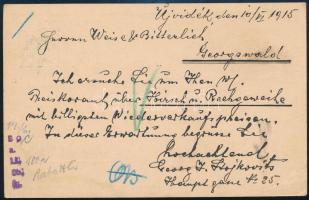 Újvidék, den 10/VI 1915
Herren Weise & Bitterlich
Georgswald
Ich ersuche Sie um Ihre w/.
Preiskorant über Hirsch u. Rehgeweihe
mit billigsten Wiederverkaufspreisen.
In dieser Erwartung begrüsse Sie
Hochachtend
Georg J. Stojkovits